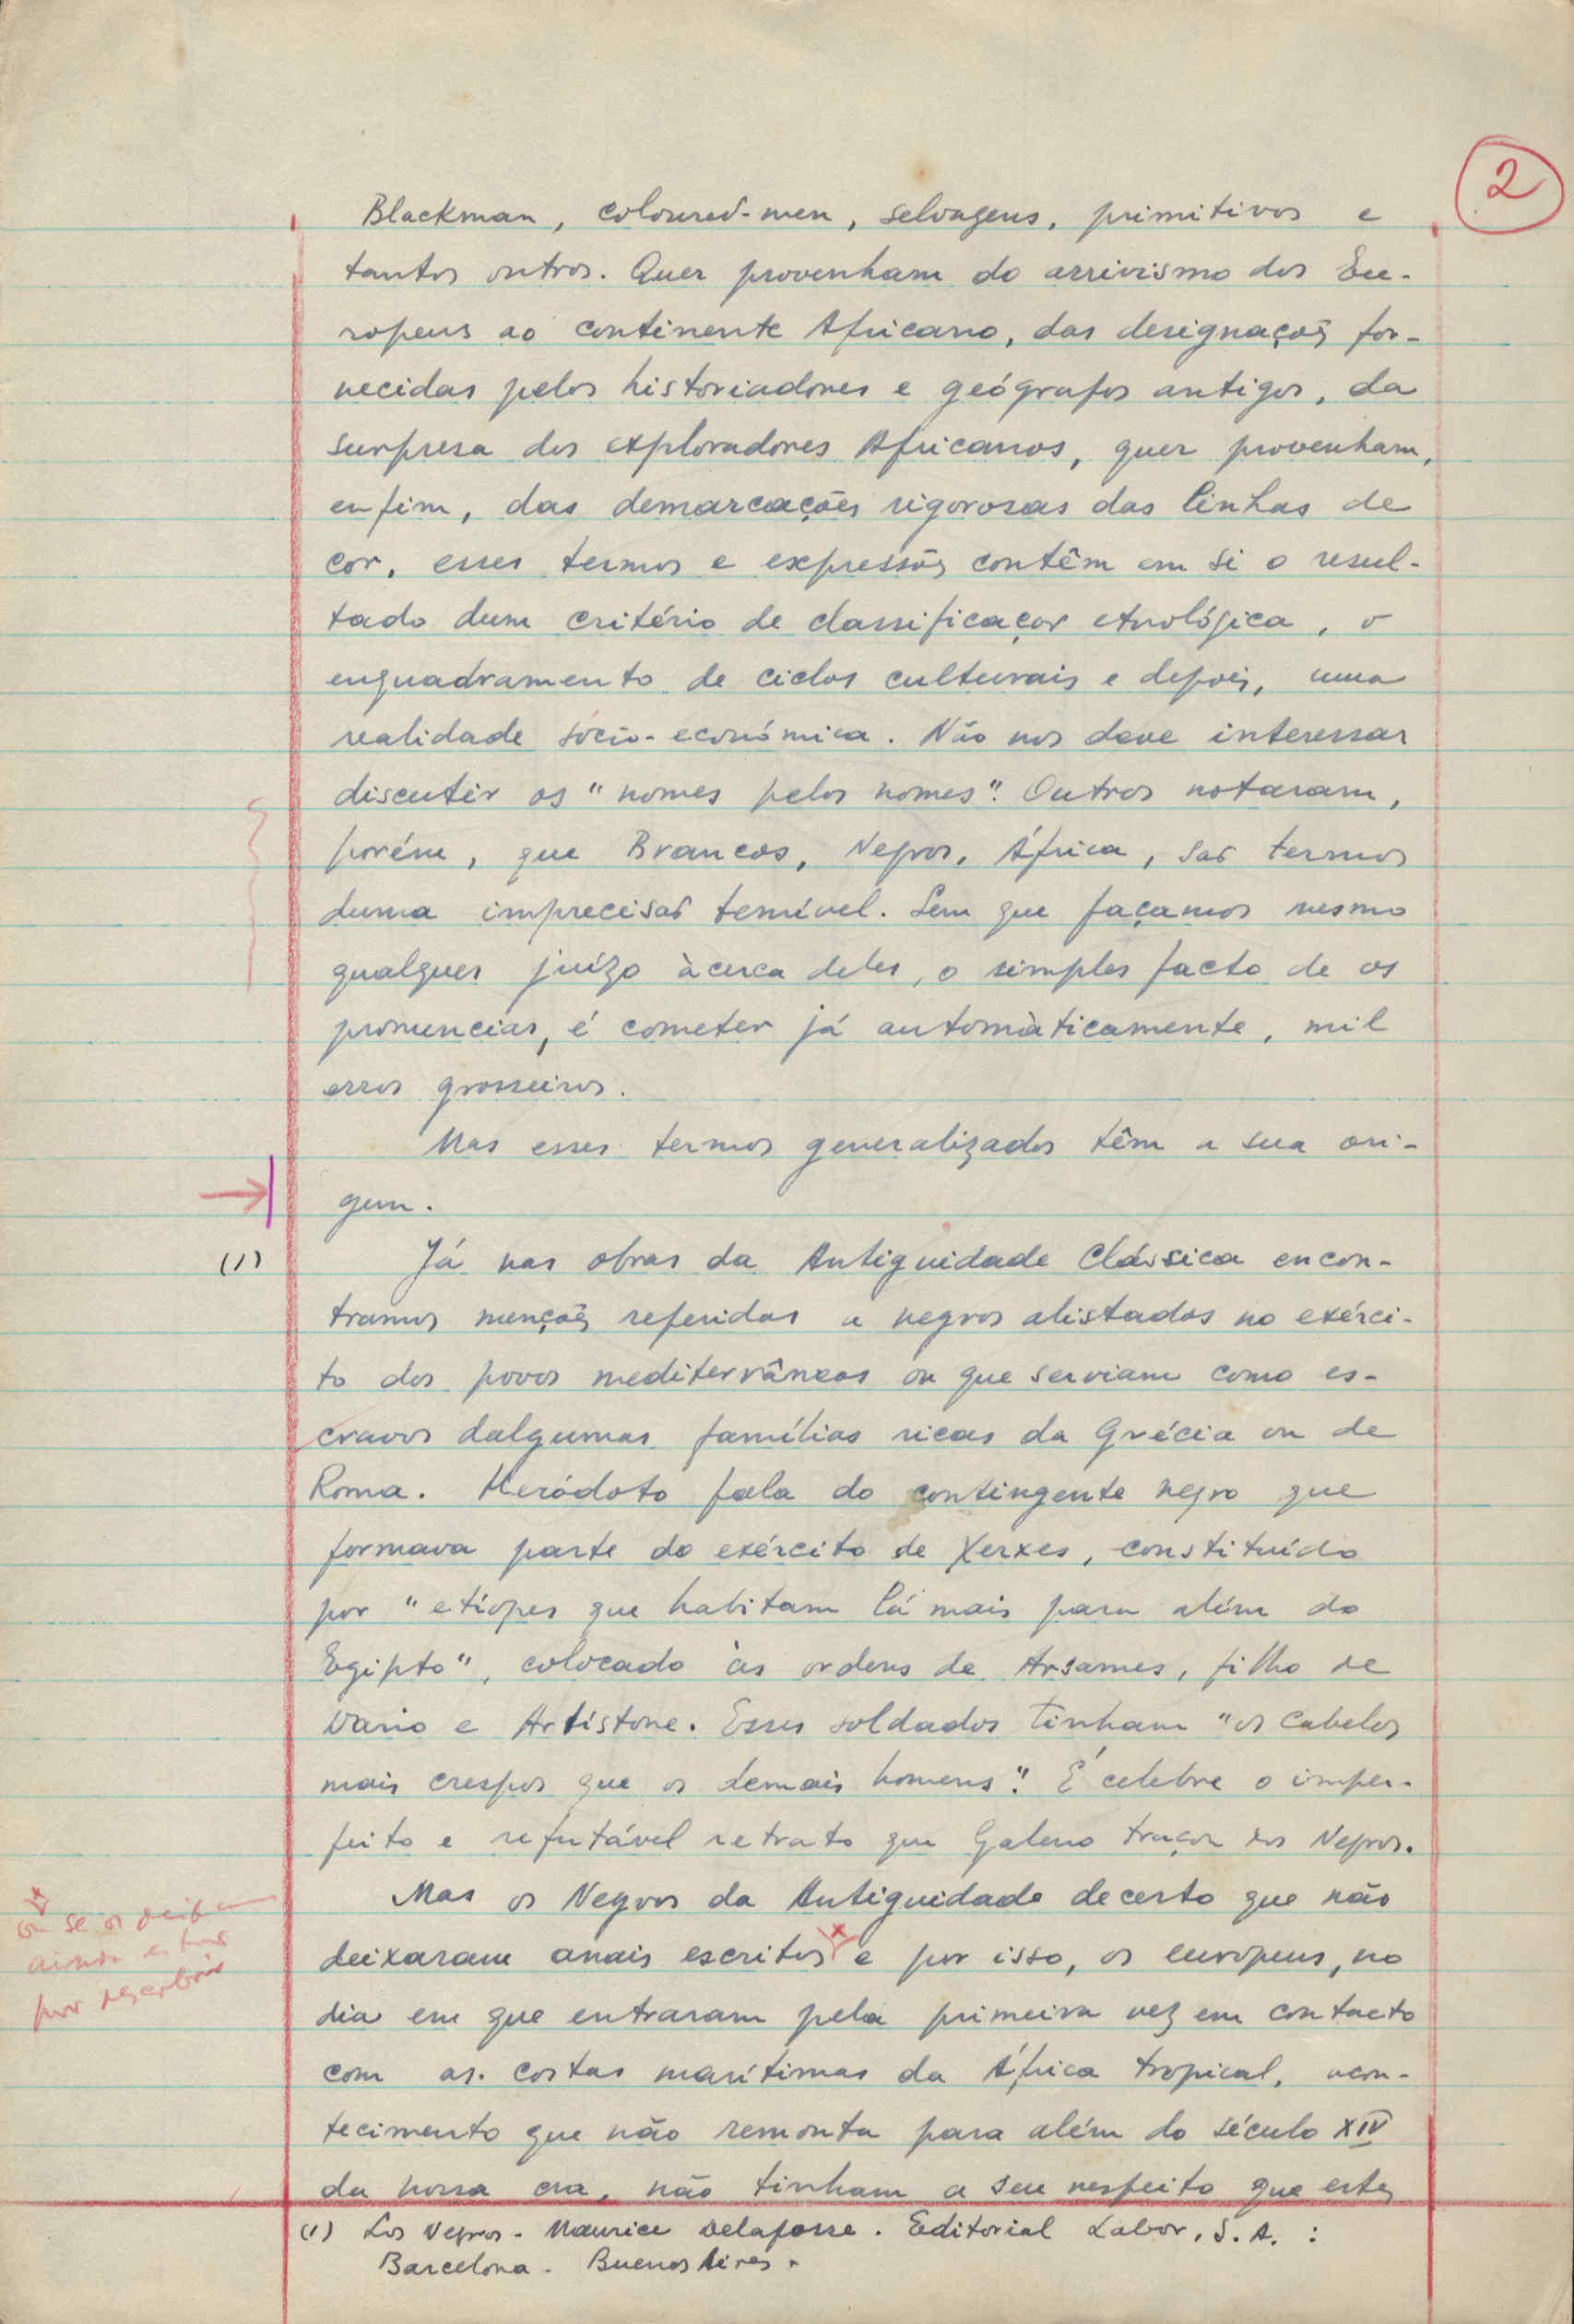 2
Blackman, coloured-men, selvagens, primitivos e
tantos outros. Quer provenham do arrivismo dos Eu-
ropeus ao continente Africano, das designações for-
necidas pelos historiadores e geógrafos antigos, da
surpresa dos exploradores Africanos, quer provenham,
enfim, das demarcações rigorosas das linhas de
cor, esses termos e expressões contêm em si o resul-
tado dum critério de classificação etnológica, o
enquadramento de ciclos culturais e depois, uma
realidade sócio-económica. Não nos deve interessar
discutir os "nomes pelos nomes". Outros notaram,
porém, que Brancos, Negros, África, são termos
duma imprecisão temível. Sem que façamos mesmo
qualquer juízo àcerca deles, o simples facto de os
pronunciar, é cometer já automàticamente, mil
erros grosseiros.
Mas esses termos generalizados têm a sua ori-
gem.
(1) Já nas obras da Antiguidade Clássica encon-
tramos menções referidas a negros alistados no exérci-
to dos povos mediterrâneos ou que serviam como es-
cravos dalgumas famílias ricas da Grécia ou de
Roma. Heródoto fala do contingente negro que
formava parte do exército de Xerxes, constituído
por "etíopes que habitam lá mais para além do
Egipto", colocado às ordens de Arsames, filho de
Dario e Artístone. Esses soldados tinham "os cabelos
mais crespos que os demais homens". É celebre o imper-
feito e refutável retrato que Galeno traçou dos Negros.
Mas os Negros da Antiguidade decerto que não
deixaram anais escritos e por isso, os europeus, no
dia em que entraram pela primeira vez em contacto
com as costas marítimas da África tropical, acon-
tecimento que não remonta para além do século XIV
da nossa era, não tinham a seu respeito que estes
ou se os
ainda
por descobrir
(1) Los Negros - Maurice Delafosse. Editorial Labor, S.A. :
Barcelona - Buenos Aires.